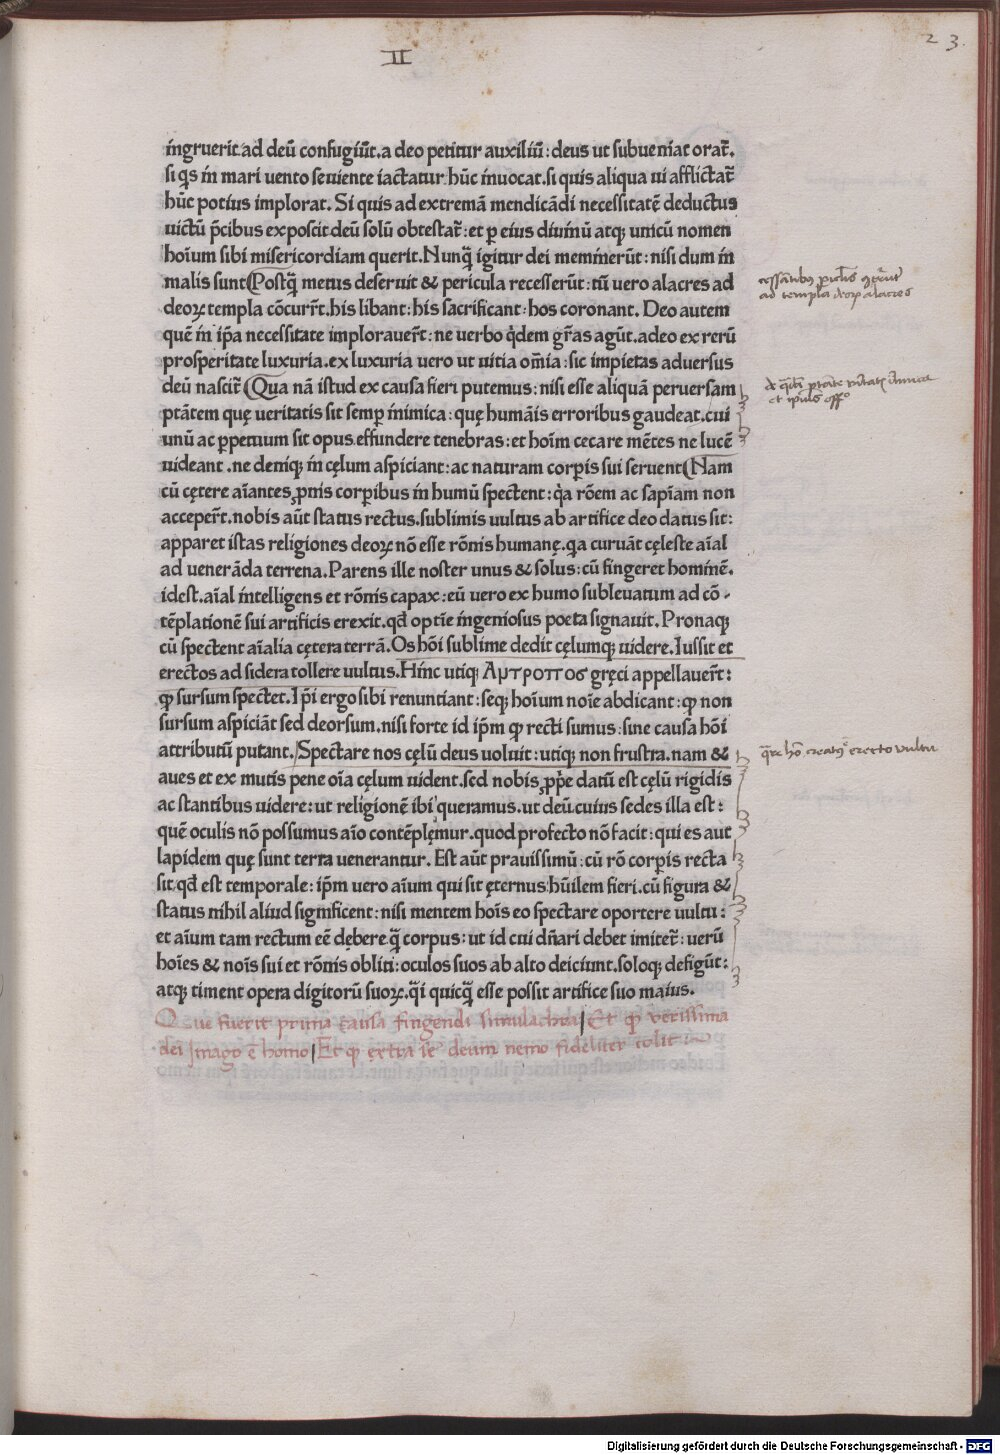 II
23.
ingruerit ad deū confugiūt. a deo petitur auxiliū: deus ut subueniat orat̃.
si q̄s in mari uento seuiente iactatur hūc inuocat. si quis aliqua ui afflictat̃
hūc potius implorat. Si quis ad extremā mendicādi necessitatē deductus
uictū p̄cibus exposcit deū solū obtestat̃: et ꝑ eius diuinū atqꝫ unicū nomen
hoīum sibi misericordiam querit. Nunq̄ igitur dei meminerūt: nisi dum in
malis sunt Postq̄ metus deseruit & pericula recesserūt: tū uero alacres ad
deoꝝ templa cōcurrt̃. his libant: his sacrificant: hos coronant. Deo autem
quē in ip̄a necessitate implorauert̃: ne uerbo q̇dem gr̄as agūt. adeo ex rerū
prosperitate luxuria. ex luxuria uero ut uitia om̄ia: sic impietas aduersus
deū nascit̃ Qua nā istud ex causa fieri putemus: nisi esse aliquā peruersam
ptātem quę ueritatis sit semꝑ inimica: quę humāis erroribus gaudeat. cui
unū ac ꝑpetuum sit opus effundere tenebras: et hoīm cecare mētes ne lucē
uideant . ne deniqꝫ in cęlum aspiciant: ac naturam corꝑis sui seruent Nam
cū cętere aīantes ꝓnis corꝑibus in humū spectent: q̇a rōem ac sapīam non
accepert̃. nobis aūt status rectus. sublimis uultus ab artifice deo datus sit:
apparet istas religiones deoꝝ nō esse rōnis humanę. q̇a curuāt cęleste aīal
ad uenerāda terrena. Parens ille noster unus & solus: cū fingeret hominē.
idest. aīal intelligens et rōnis capax: eū uero ex humo subleuatum ad cō-
tēplationē sui artificis erexit. qđ optīe ingeniosus poeta signauit. Pronaqꝫ
cū spectent aīalia cętera terrā. Os hōi sublime dedit cęlumqꝫ uidere. Iussit et
erectos ad sidera tollere uultus. Hinc utiqꝫ Αμτροπος gręci appellauert̃:
ꝙ sursum spectet. Ip̄i ergo sibi renuntiant: seqꝫ hoīum noīe abdicant: ꝙ non
sursum aspiciāt sed deorsum. nisi forte id ip̄m ꝙ recti sumus: sine causa hōi
attributū putant. Spectare nos cęlū deus uoluit: utiqꝫ non frustra. nam &
aues et ex mutis pene oīa cęlum uident. sed nobis ꝓp̄e datū est cęlū rigidis
ac stantibus uidere: ut religionē ibi queramus. ut deū cuius sedes illa est:
quē oculis nō possumus aīo contēplęmur. quod profecto nō facit: qui es aut
lapidem quę sunt terra uenerantur. Est aūt prauissimū: cū rō corꝑis recta
sit. qđ est temporale: ip̄m uero aīum qui sit ęternus hūilem fieri. cū figura &
status nihil aliud significent: nisi mentem hoīs eo spectare oportere uultu:
et aīum tam rectum eē dębere q̄ corpus: ut id cui dn̄ari debet imitet̃: uerū
hoīes & noīs sui et rōnis obliti: oculos suos ab alto deiciunt. soloqꝫ defigūt:
atqꝫ timent opera digitorū suoꝝ. q̄i quicq̄ esse possit artifice suo maius.
Que fuerit prima causa fingendi simulachra Et ꝙ verissima
dei Imago ē homo Et ꝙ extra se deum nemo fideliter colit
ad templa deoꝝ alacres
erecto vultu
Digitalisierung gefördert durch die Deutsche Forschungsgemeinschaft - DFG